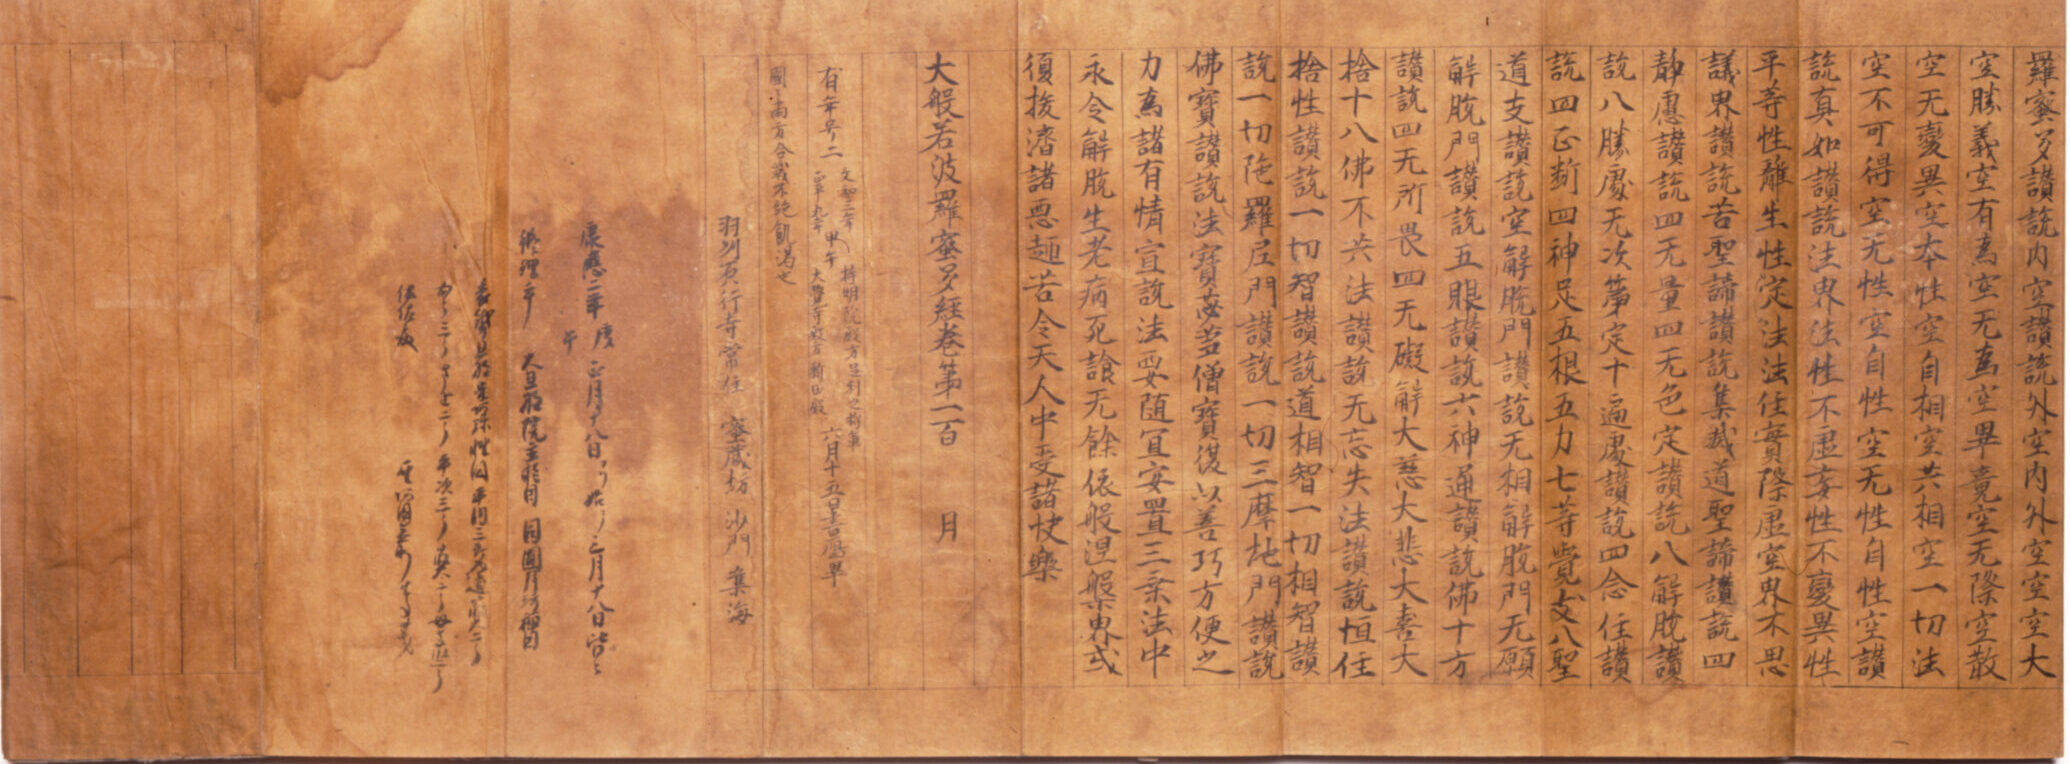 羅蜜多讃説内空讃説外空内外空空空大
空勝義空有為空无為空畢竟空无際空散
空无變異空本性空自相空共相空一切法
空不可得空无性空自性空无性自性空讃
説真如讃説法界法性不虚妄性不變異性
平等性離生性定法法住實際虚空界不思
議界讃説苦聖諦讃説集滅道聖諦讃説四
静慮讃説四无量四无色定讃説八解脱讃
説八勝處无次第定十遍處讃説四念住讃
説四正断四神足五根五力七等覺支八聖
道支讃説空解脱門讃説无相解脱門无願
解脱門讃説五眼讃説六神通讃説佛十方
讃説四无所畏四无礙解大慈大悲大喜大
捨十八佛不共法讃説无忘失法讃説恒住
捨性讃説一切智讃説道相智一切相智讃
説一切陁羅尼門讃説一切三摩地門讃説
佛寶讃説法寶苾芻僧寶復以善巧方便之
力為諸有情宣説法要随宜安置三乗法中
永令解脱生老病死諭无餘依般涅槃界或
復拔濟諸悪趣苦令天人中受諸快樂
大般若波羅蜜多經巻第一百 月
有年号二 文和三年 正平九年 甲午 持明院殿方足利之将軍 大覺寺殿方新田殿 六月十五日書畢
國ニ両方合戦不絶飢渇也
羽州 行寺常住 蜜蔵坊 沙門 集海
康應二年 庚午 正月十八日ヨリ始 三月十八日皆
修理畢